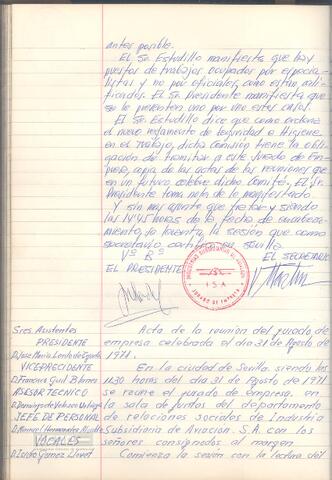 antes posible.
El Sr. Estudillo manifiesta que hay
puestos de trabajos ocupados por especia-
listas y no por oficiales como están cali-
ficados. El Sr. Presidente manifiesta que
se le presenten uno por uno estos casos.
El Sr. Estudillo dice que como ordena
el nuevo reglamento de Seguridad e Higiene
en el Trabajo, dicha comisión tiene la obli-
gación de tramitar a este Jurado de Em-
presa, copia de las actas de las reuniones que
en un futuro celebre dicho Comité. El Sr.
Presidente toma nota de lo manifestado
Y sin más asuntos que tratar y siendo
las 14.45 horas de la fecha de encabeza-
miento, se levanta la sesión que como
secretario certifico en Sevilla
Vº Bº
EL SECRETARIO
EL PRESIDENTE
I S A
JURADO DE EMPRESA
Sres. Asistentes
PRESIDENTE
D. Jose María
VICEPRESIDENTE
D. Francisco Guil Blanes
ASESOR TECNICO
D. Domingo de
JEFE DE PERSONAL
D. Manuel Hernandez
VOCALES
D. Carlos Gomez
Acta de la reunión del jurado de
empresa celebrada el dia 31 de Agosto de
1971.
En la ciudad de Sevilla, siendo las
11.30 horas del dia 31 de Agosto de 1971
se reune el jurado de empresa, en
la sala de juntas del departamento
de relaciones sociales de Industria
Subsidiaria de Aviación S.A. con los
señores consignados al margen
Comienza la sesión con la lectura del